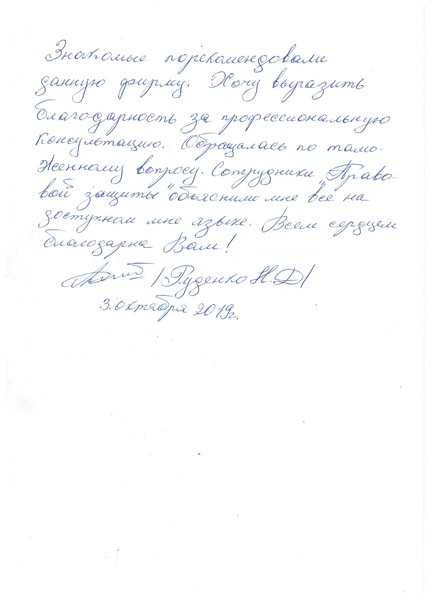 Знакомые порекомендовали
данную фирму. Хочу выразить
благодарность за профессиональную
консультацию. Обращалась по тамо-
женному вопросу. Сотрудники "Право-
вой защиты" объяснили мне всё на
доступном мне языке. Всем сердцем
благодарна Вам!
/Руденко Н.Д/
3. октября 2019г.